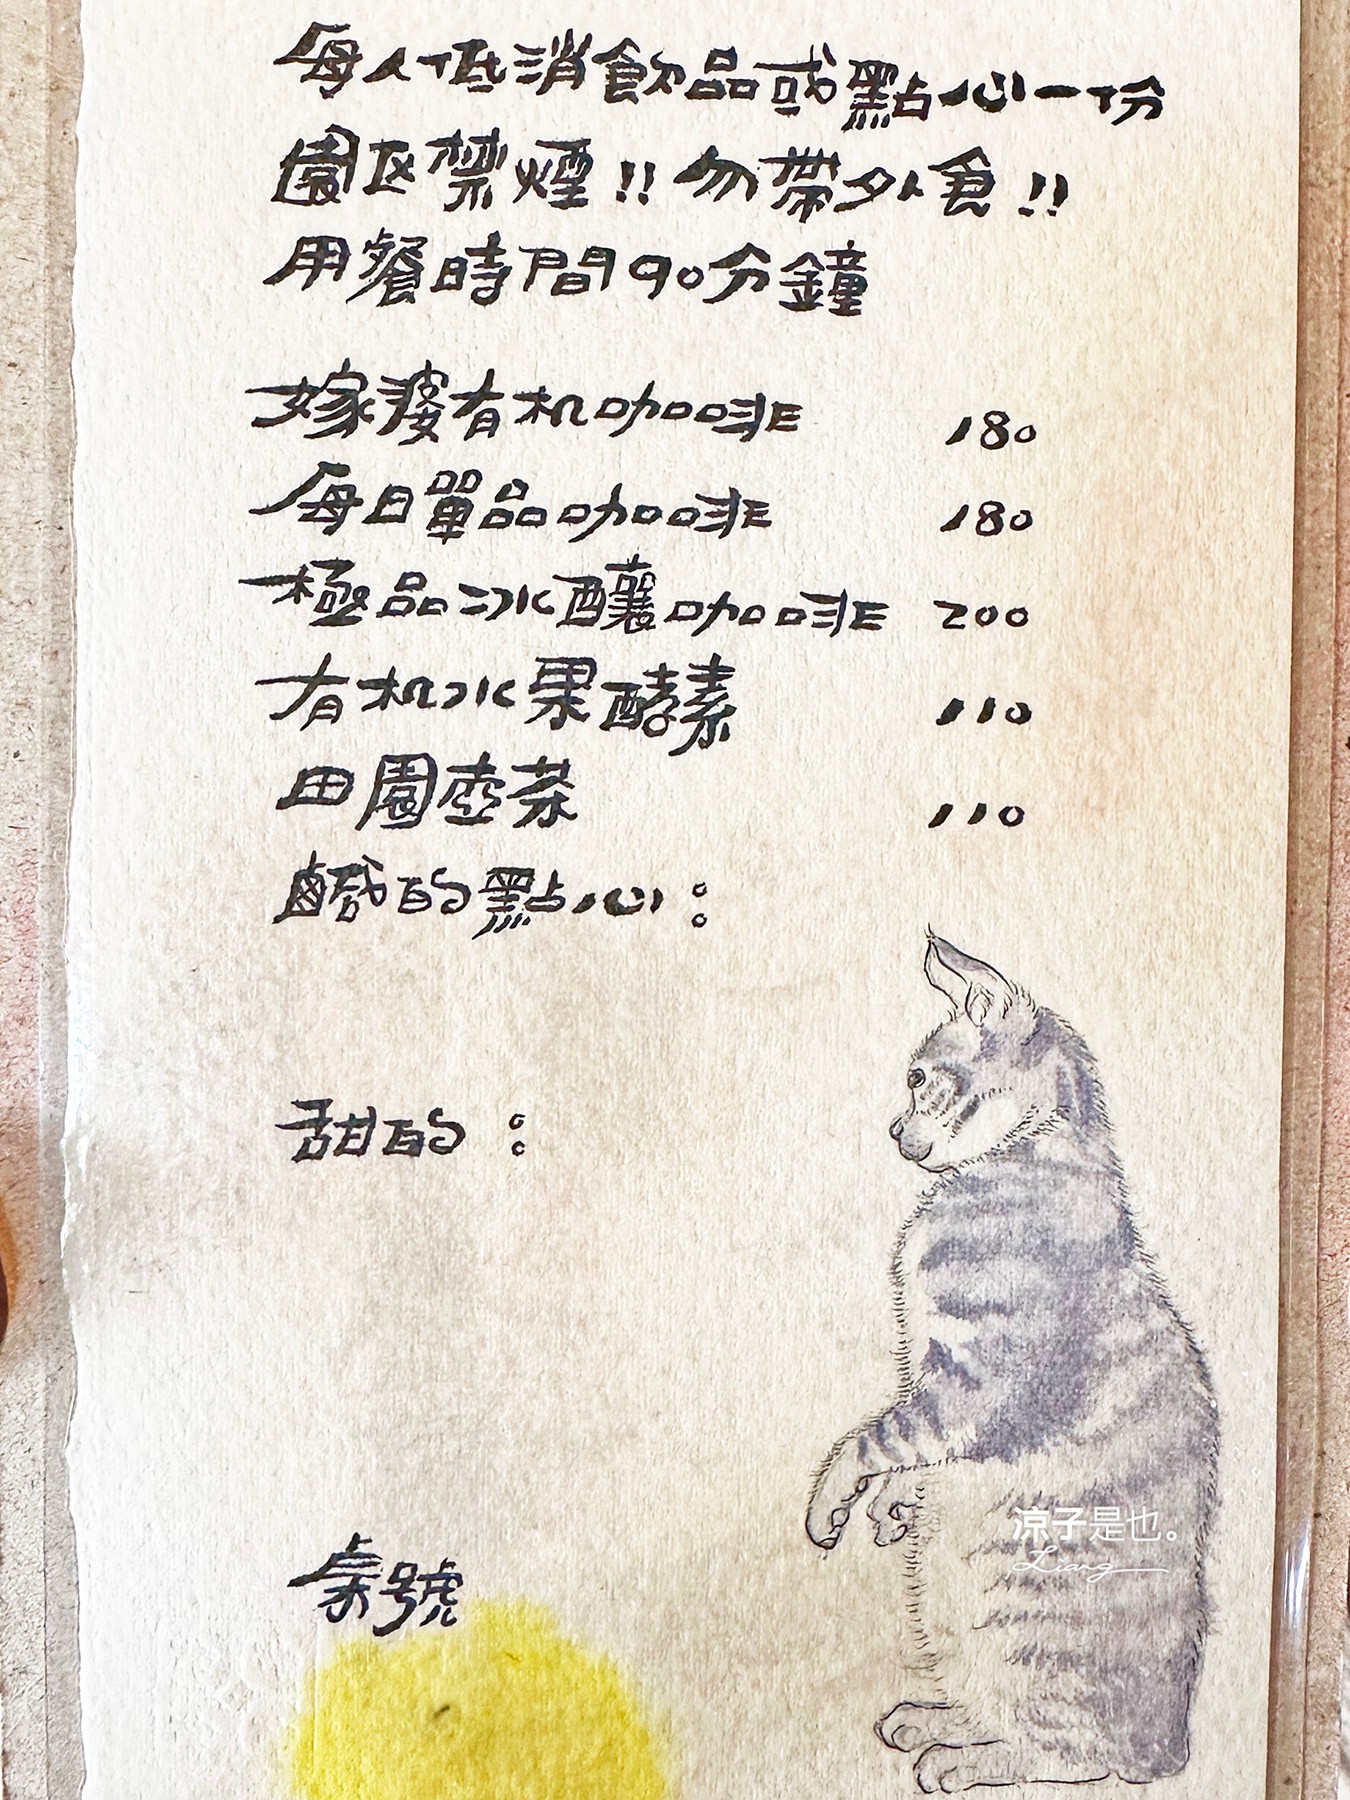 每人低消飲品或點心一份
園区禁煙!!勿帶外食!!
用餐時間90分鐘
嫁婆有机咖啡 180
每日單品咖啡 180
極品冰釀咖啡 200
有机水果酵素 110
田園壺茶 110
鹹的點心：
甜的：
桌號
涼子是也。
Liang